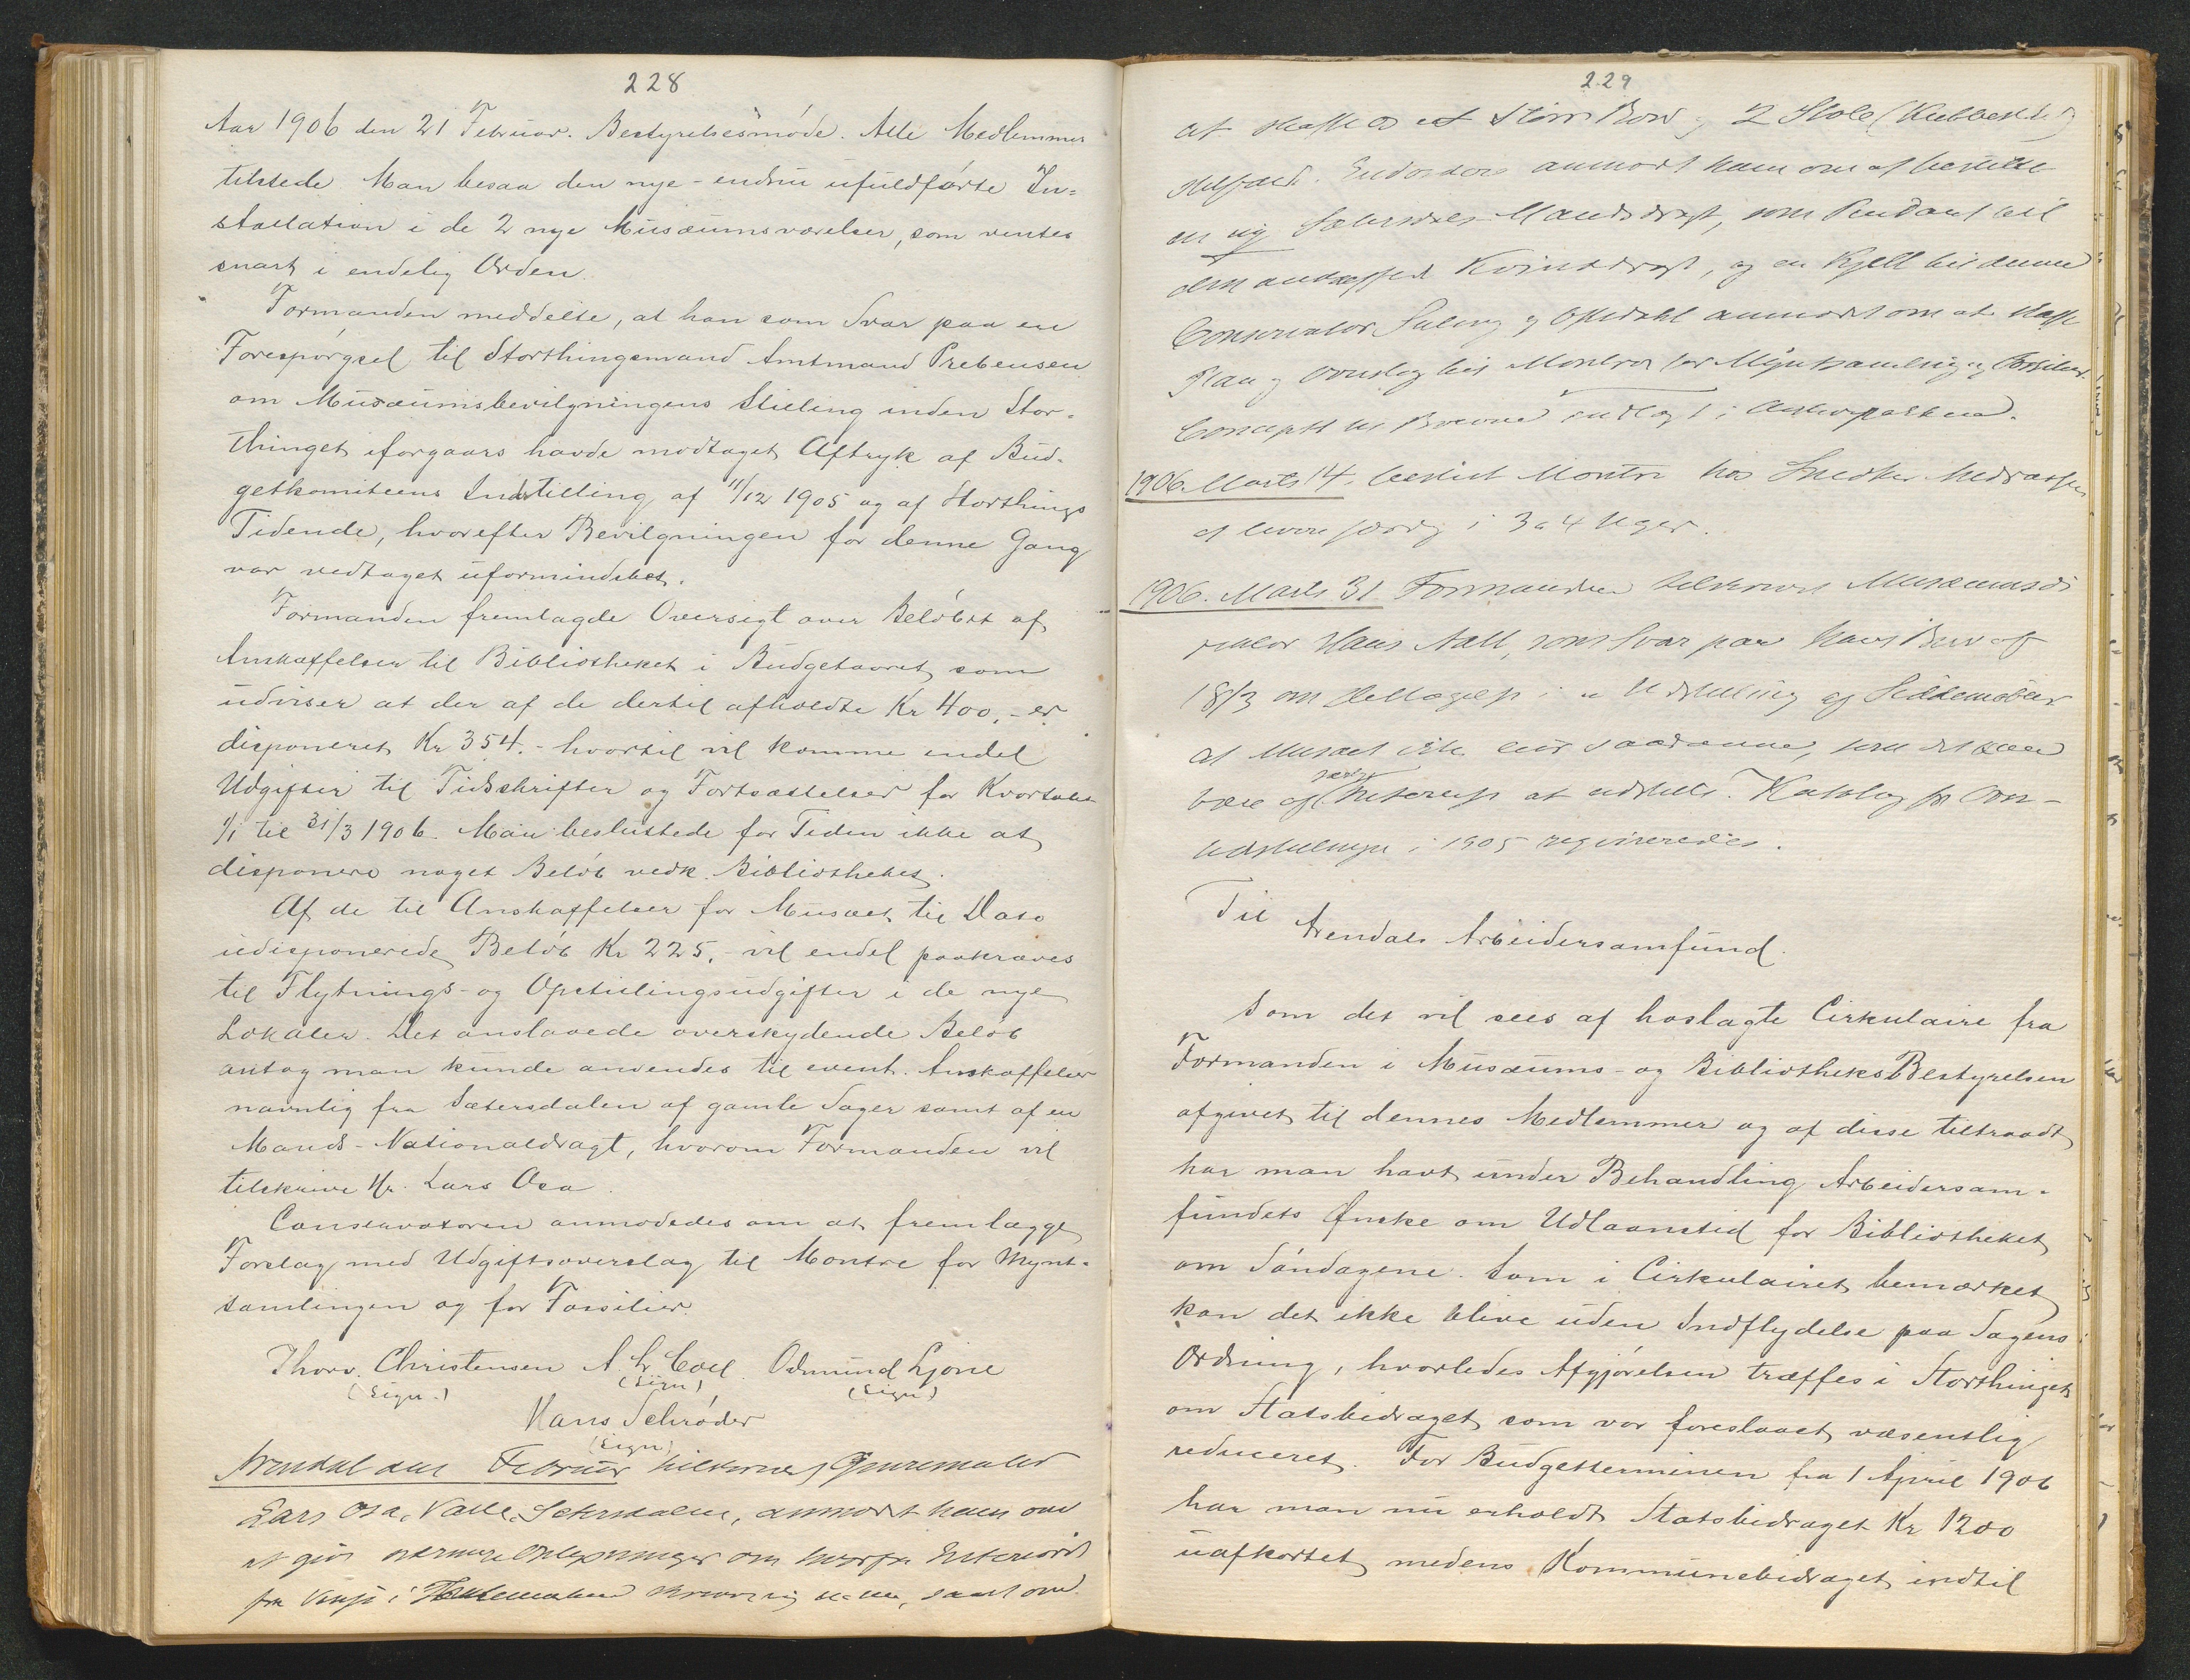 228
Aar 1906 den 21 Februar. Bestyrelsesmøde. Alle Medlemmer
tilstede Man besaa den nye - endnu ufuldførte In=
stallation i de 2 nye Musæumsværelser, som ventes
snart i endelig Orden.
Formanden meddelte, at han som Svar paa en
Forespørgsel til Storthingsmand Amtmand Prebensen
om Musæumsbevilgningens Stilling inden Stor-
thinget iforgaars havde modtaget Aftryk af Bud-
getkomiteens Indstilling af 11/12 1905 og af Storthings
Tidende, hvorefter Bevilgningen for denne Gang
var vedtaget uformindsket.
Formanden fremlagde Oversigt over Beløbet af
Anskaffelser til Bibliotheket i Budgetaaret, som
udviser at der af de dertil afholdte Kr 400,- er
disponeret Kr 354.- hvortil vil komme endel
Udgifter til Tidsskrifter og Fortsættelser for Kvartalet
1/1 til 31/3 1906. Man besluttede for Tiden ikke at
disponere noget Beløb vedk. Bibliotheket.
Af de til Anskaffelser for Musæet til Dato
udisponerede Beløb Kr 225,- vil endel paakræves
til Flytnings- og Opstillingsudgifter i de nye
Lokaler. Det anslaaede overskydende Beløb
antog man kunde anvendes til event. Anskaffelser
navnlig fra Sætersdalen af gamle Sager samt af en
Mands-Nationaldragt, hvorom Formanden vil
tilskrive Hr. Lars Osa.
Conservatoren anmodedes om at fremlægge
Forslag med Udgiftsoverslag til Montre for Mynt-
samlingen og for Fossilier.
Thorv. Christensen A. Chr. Coll. Odmund Ljone
(sign.) (sign) (sign)
Hans Schrøder
(sign)
Arendal den Februar tilskrevet Genremaler
Lars Osa, Valle, Setersdalen, anmodet ham om
at give nærmere Oplysninger om hvorfra Interiøret
fra Vinje i Thelemarken skriver sig, samt om
229
at skaffe os et Bord og 2 Stole (Kubbestole)
. Endvidere anmodt ham om at bestille
en ny Sætersdals Mandsdragt, som Pendant til
den anskaffede Kvindedragt, og en Kjell til denne
Conservator og anmodet om at skaffe
Plan og Overslag til Montre for Myntsamling og Fossilier.
Concepte til Brevene indlagt i
1906. Marts 14. bestilt Montre hos Snedker
at levere færdig i 3 a 4 Uger.
1906. Marts 31 Formanden tilskrevet Musæumsdi
rektør Hans Aall, som Svar paa hans Brev af
18/3 om Deltagelse i en Udstilling af
at Musæet ikke eier saadanne, som det kan
være af særlig Interesse at udstille. Katalog for
Udstillingen i 1905 reqvireredes.
Til
Arendals Arbeidersamfund.
Som det vil sees af hoslagte Cirkulaire fra
Formanden i Musæums- og Bibliotheks Bestyrelsen
afgivet til dennes Medlemmer og af disse tiltraadt
har man havt under Behandling Arbeidersam-
fundets Ønske om Udlaanstid for Bibliotheket
om Søndagene. Som i Cirkulairet bemærket
kan det ikke blive uden Indflydelse paa Sagens
Ordning, hvorledes Afgjørelsen træffes i Storthinget
om Statsbidraget som var foreslaaet væsentlig
reduceret. For Budgetterminen fra 1 April 1906
har man nu erholdt Statsbidraget Kr 1200
uafkortet, medens Kommunebidraget indtil